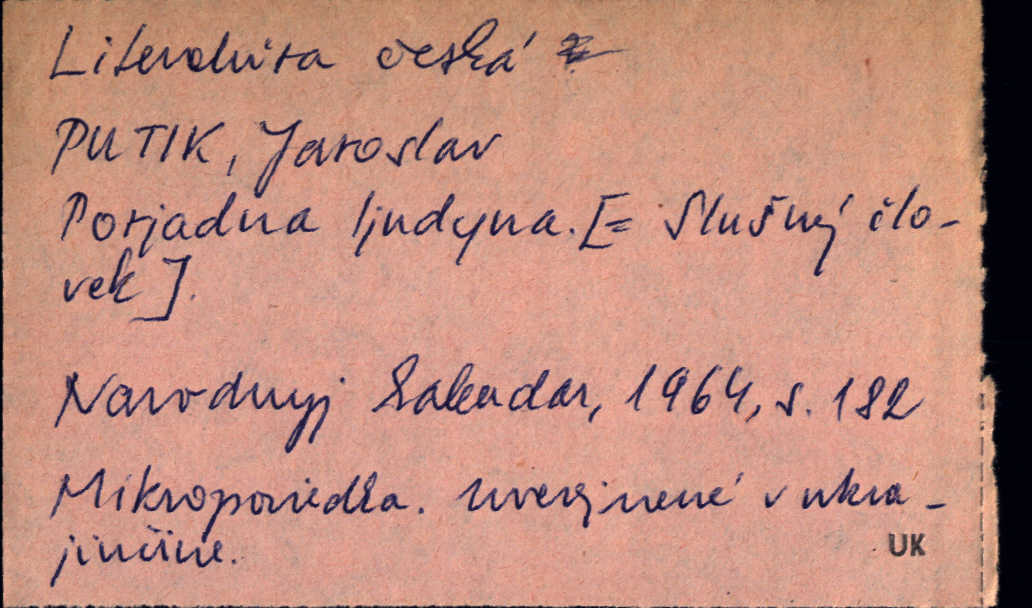 Literatúra česká
PUTIK, Jaroslav
Porjadna ljudyna. [= Slušný člo-
vek].
Narodnyj kalendar, 1964, s. 182
Mikropoviedka. Uverejnené v ukra-
jinčine.
UK